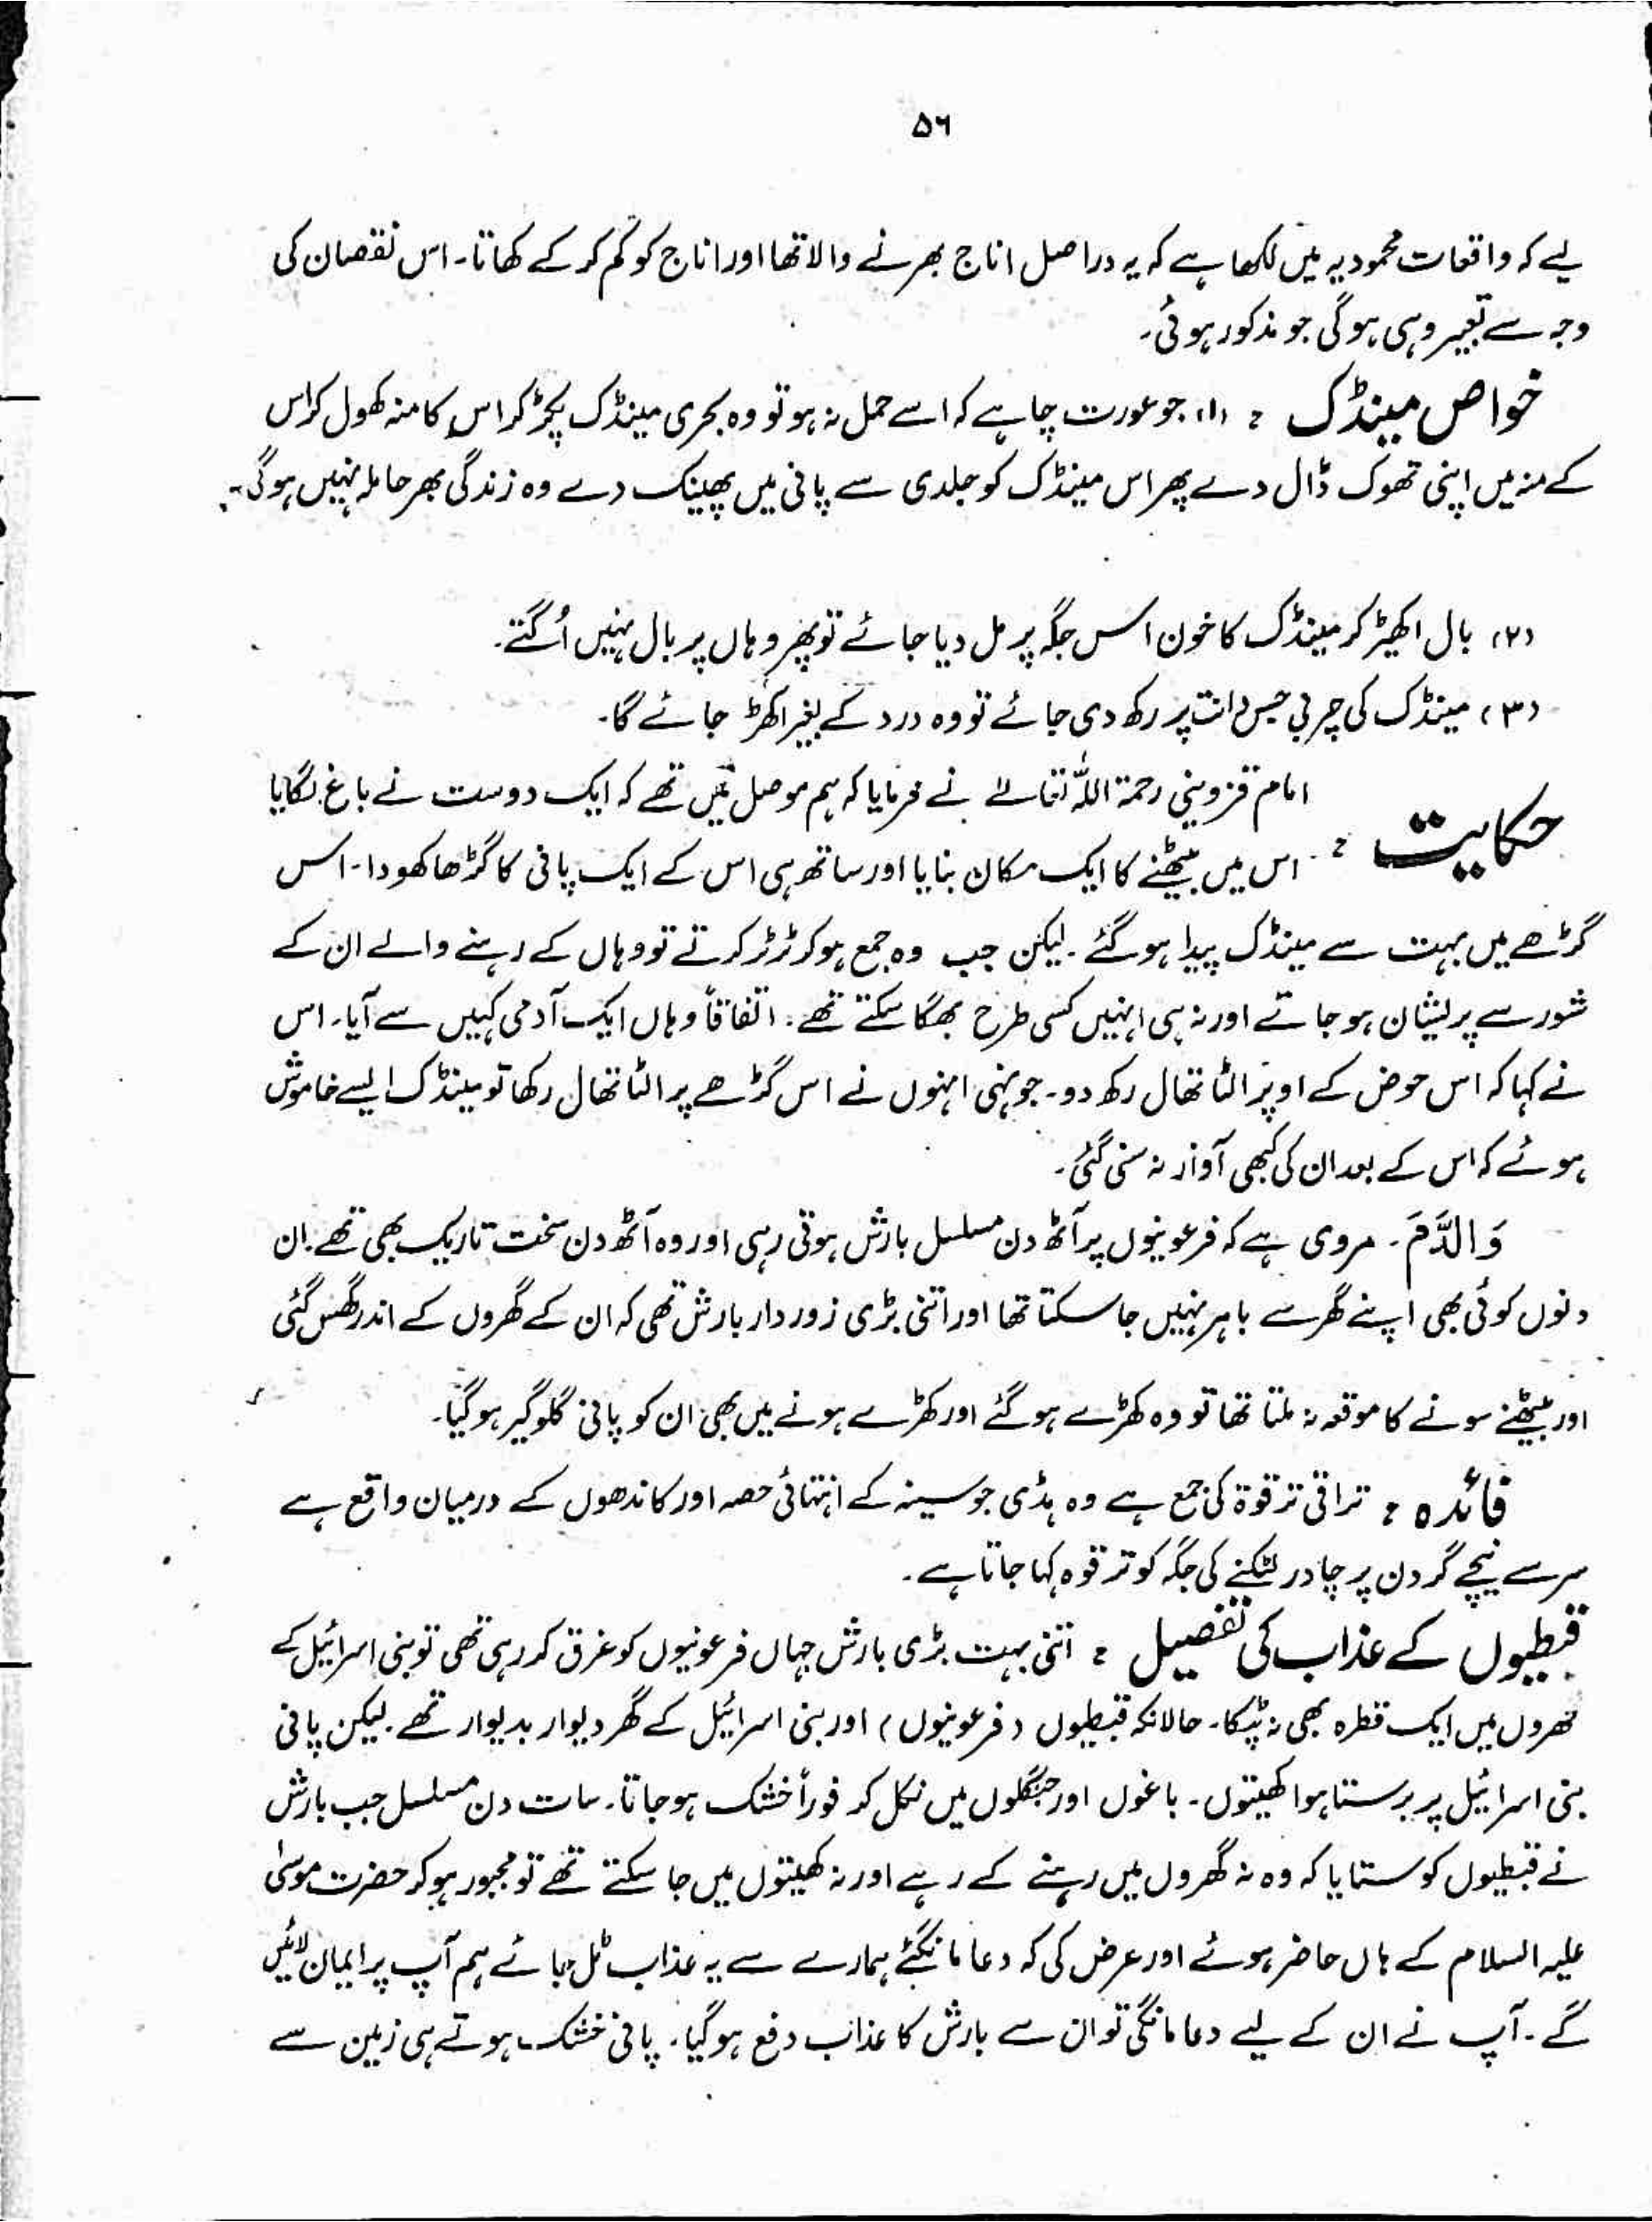 ۵۶
لیے کہ واقعات محمودیہ میں لکھا ہے کہ یہ دراصل اناج بھرنے والا تھا اور اناج کو کم کر کے کھاتا۔ اس نقصان کی
وجہ سے تعبیر وہی ہوگی جو مذکور ہوئی۔
خواص مینڈک : (۱) جو عورت چاہے کہ اسے حمل نہ ہو تو وہ بحری مینڈک پکڑ کر اس کا منہ کھول کر اس
کے منہ میں اپنی تھوک ڈال دے پھر اس مینڈک کو جلدی سے پانی میں پھینک دے وہ زندگی بھر حاملہ نہیں ہوگی۔
(۲) بال اکھیڑ کر مینڈک کا خون اس جگہ پر مل دیا جائے تو پھر وہاں پر بال نہیں اُگتے۔
(۳) مینڈک کی چربی جس دانت پر رکھ دی جائے تو وہ درد کے بغیر اکھڑ جائے گا۔
حکایت : امام قزوینی رحمۃ اللہ تعالےٰ نے فرمایا کہ ہم موصل میں تھے کہ ایک دوست نے باغ لگایا
اس میں بیٹھنے کا ایک مکان بنایا اور ساتھ ہی اس کے ایک پانی کا گڑھا کھودا۔ اس
گڑھے میں بہت سے مینڈک پیدا ہو گئے۔ لیکن جب وہ جمع ہو کر ٹرٹر کرتے تو وہاں کے رہنے والے ان کے
شور سے پریشان ہو جاتے اور نہ ہی انہیں کسی طرح بھگا سکتے تھے۔ اتفاقاً وہاں ایک آدمی کہیں سے آیا۔ اس
نے کہا کہ اس حوض کے اوپر الٹا تھال رکھ دو۔ جونہی انہوں نے اس گڑھے پر الٹا تھال رکھا تو مینڈک ایسے خاموش
ہوئے کہ اس کے بعد ان کی کبھی آواز نہ سنی گئی۔
وَالدَّمَ۔ مروی ہے کہ فرعونیوں پر آٹھ دن مسلسل بارش ہوتی رہی اور وہ آٹھ دن سخت تاریک بھی تھے۔ ان
دنوں کوئی بھی اپنے گھر سے باہر نہیں جا سکتا تھا اور اتنی بڑی زور دار بارش تھی کہ ان کے گھروں کے اندر گھس گئی
اور بیٹھنے سونے کا موقعہ نہ ملتا تھا تو وہ کھڑے ہو گئے اور کھڑے ہونے میں بھی ان کو پانی گلوگیر ہو گیا۔
فائدہ : تراقی ترقوۃ کی جمع ہے وہ ہڈی جو سینہ کے انتہائی حصہ اور کاندھوں کے درمیان واقع ہے
سر سے نیچے گردن پر چادر لٹکنے کی جگہ کو ترقوہ کہا جاتا ہے۔
قبطیوں کے عذاب کی تفصیل : اتنی بہت بڑی بارش جہاں فرعونیوں کو غرق کر رہی تھی تو بنی اسرائیل کے
گھروں میں ایک قطرہ بھی نہ ٹپکا۔ حالانکہ قبطیوں (فرعونیوں) اور بنی اسرائیل کے گھر دیوار بدیوار تھے۔ لیکن پانی
بنی اسرائیل پر برستا ہوا کھیتوں۔ باغوں اور جنگلوں میں نکل کر فوراً خشک ہو جاتا۔ سات دن مسلسل جب بارش
نے قبطیوں کو ستایا کہ وہ نہ گھروں میں رہنے کے رہے اور نہ کھیتوں میں جا سکتے تھے تو مجبور ہو کر حضرت موسیٰ
علیہ السلام کے ہاں حاضر ہوئے اور عرض کی کہ دعا مانگئے ہمارے سے یہ عذاب ٹل جائے ہم آپ پر ایمان لائیں
گے۔ آپ نے ان کے لیے دعا مانگی تو ان سے بارش کا عذاب دفع ہو گیا۔ پانی خشک ہوتے ہی زمین سے